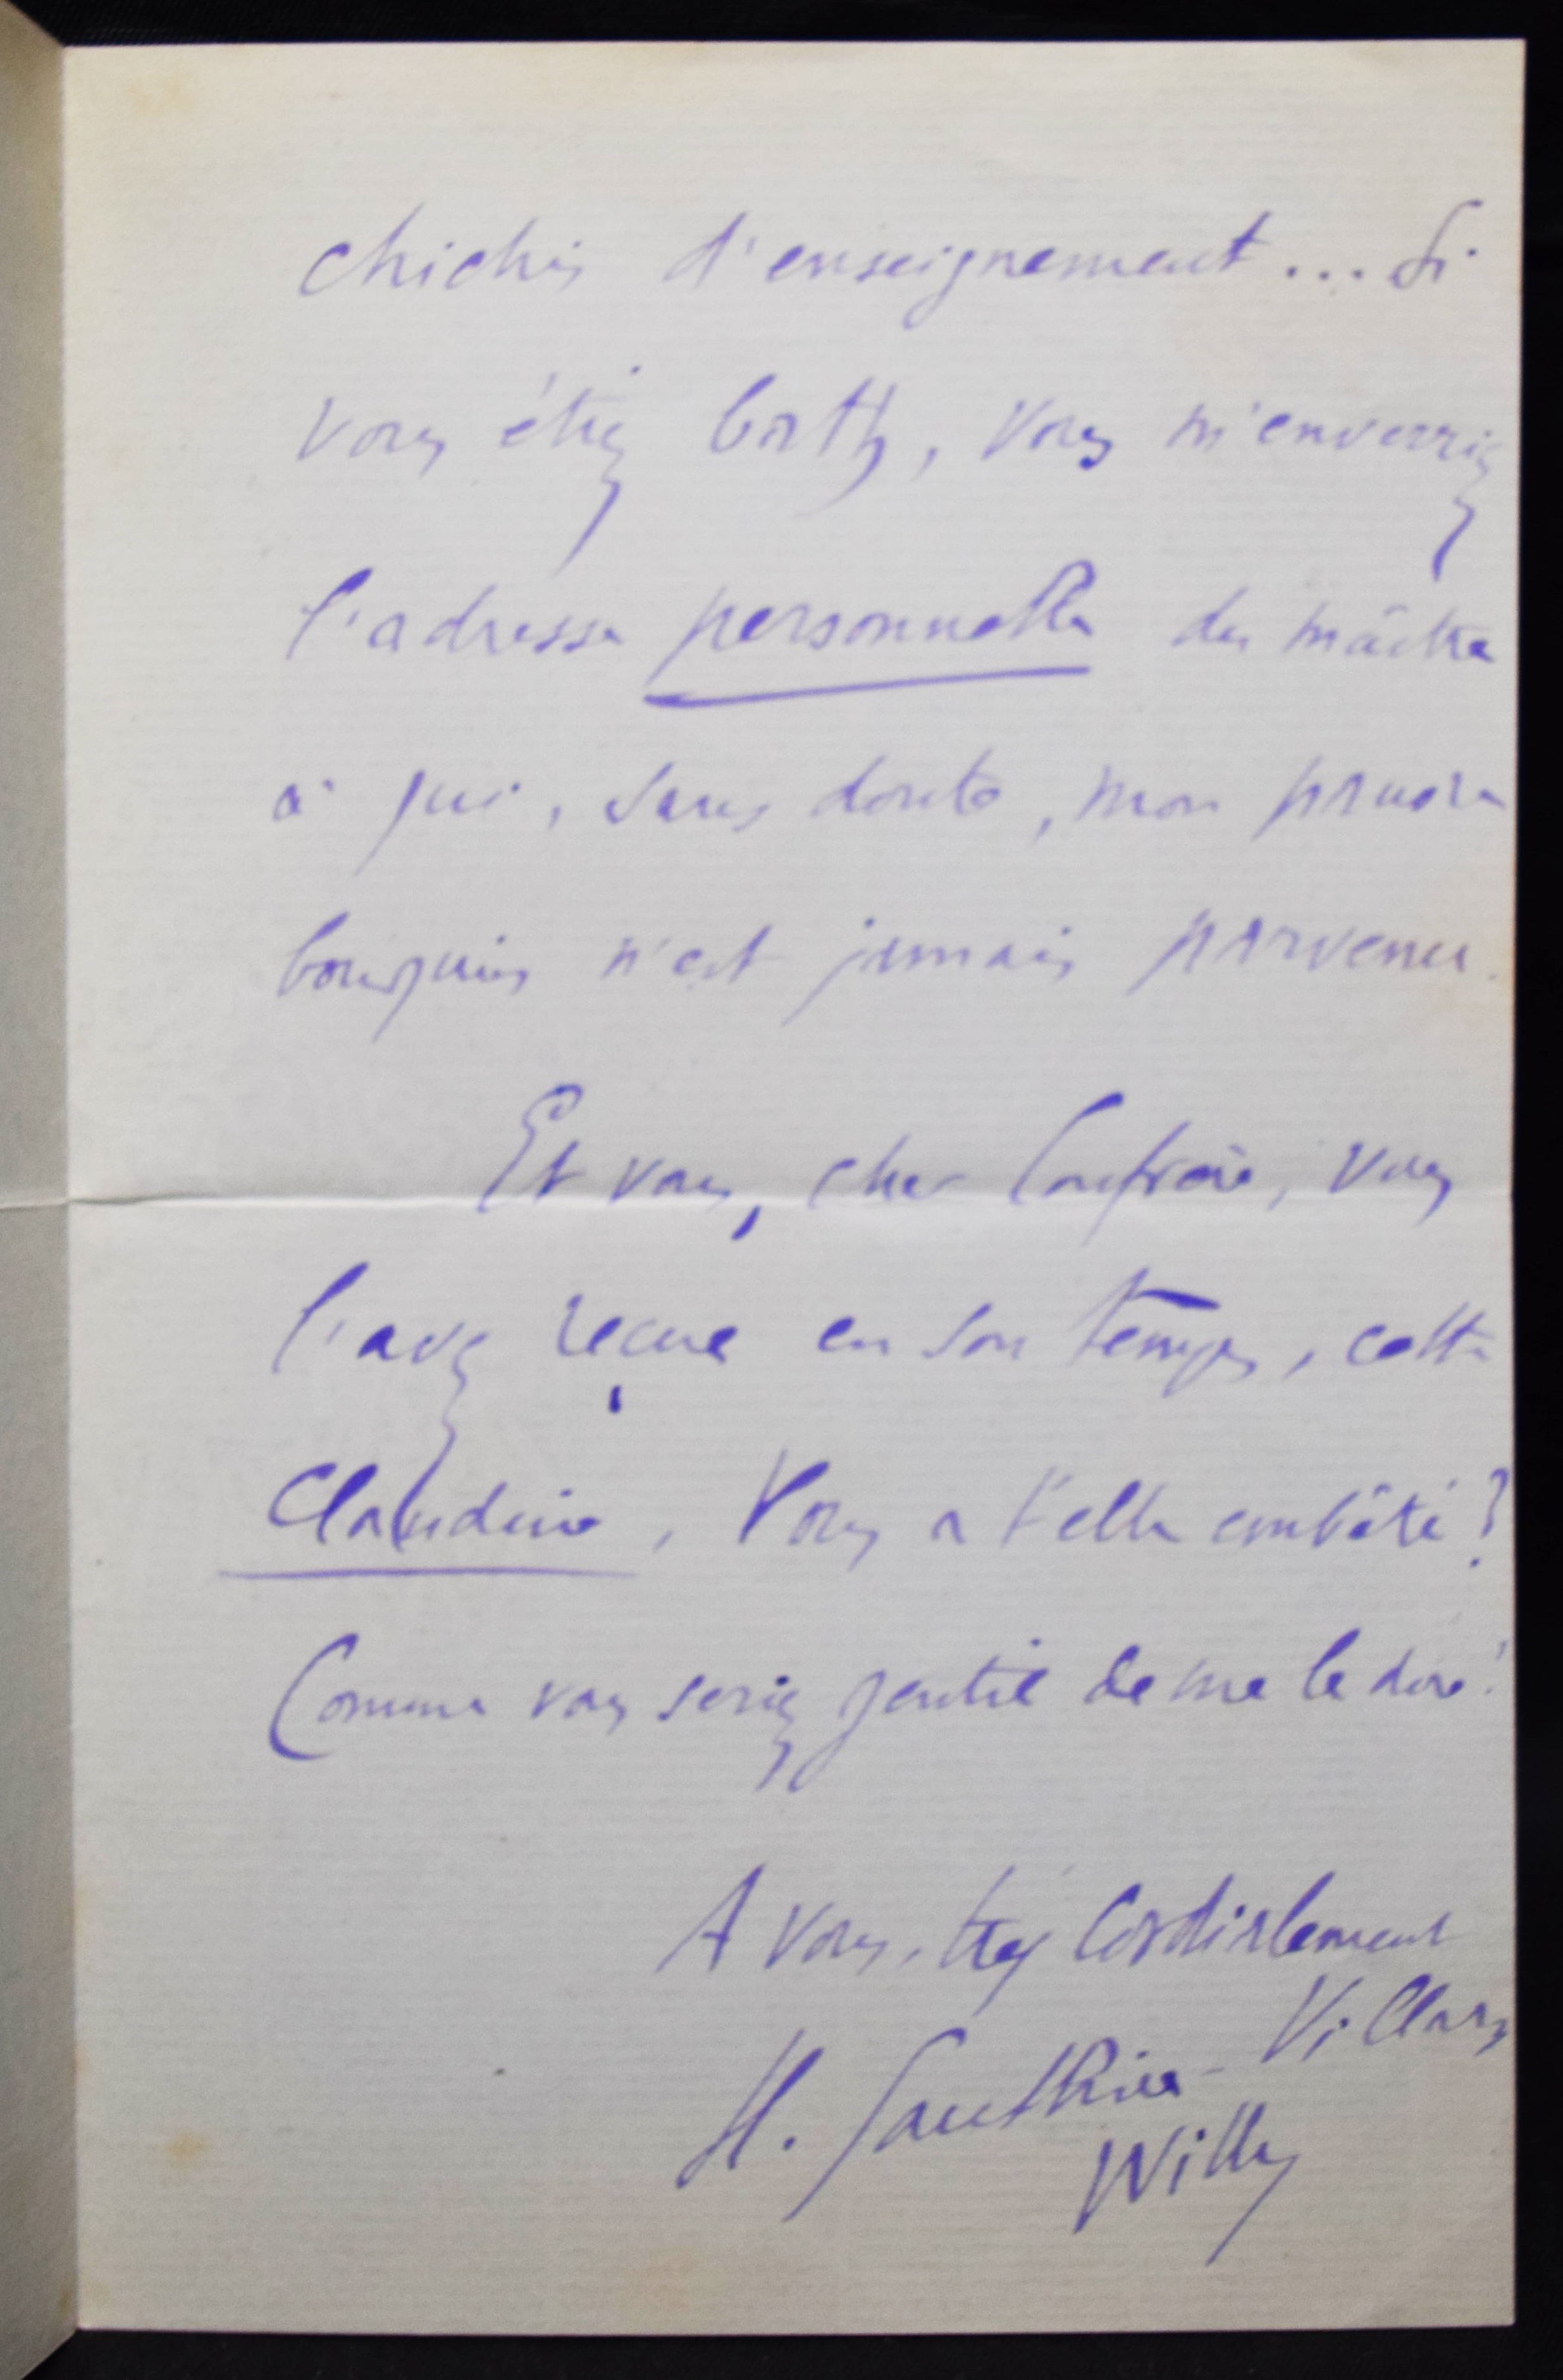 chichis d'enseignement... Si
vous étiez bath, vous m'enverriez
l'adresse personnelle du maître
à qui, sans doute, mon pauvre
bouquin n'est jamais parvenu.
Et vous, cher Confrère, vous
l'avez reçue en son temps, cette
Claudine, Vous a t'elle embêté?
Comme vous seriez gentil de me le dire!
A vous, très cordialement
H. Gauthier-Villars
Willy